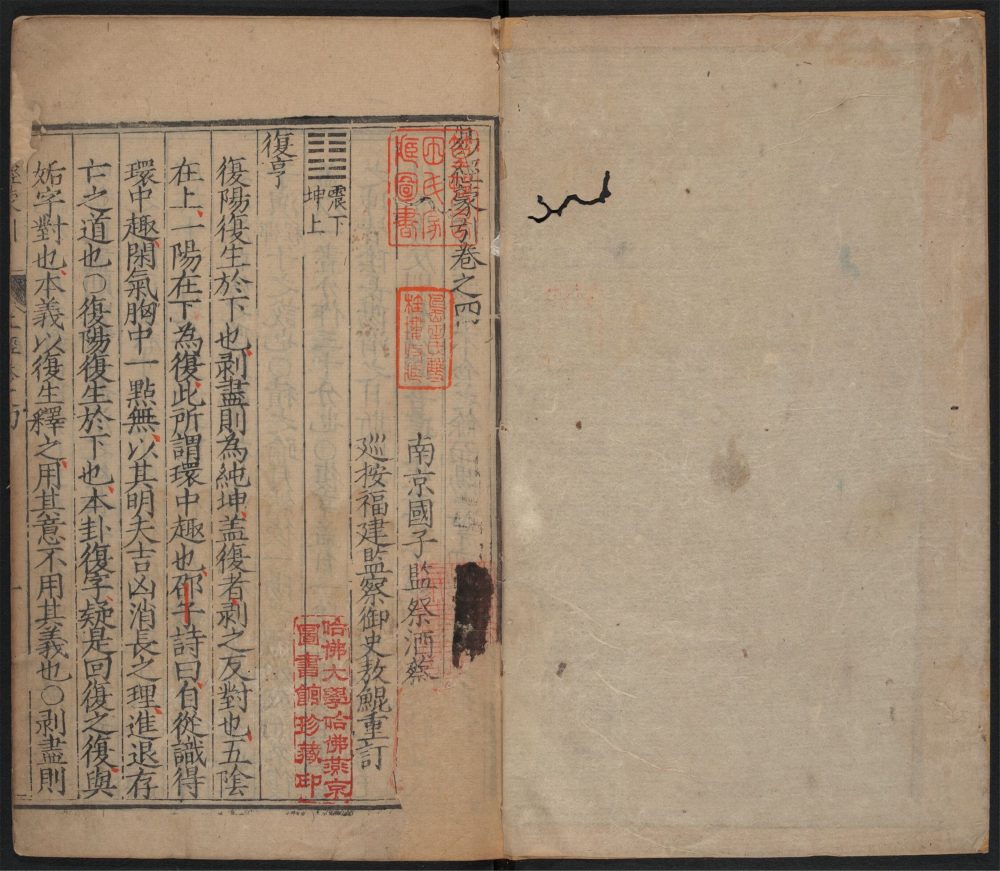 易經蒙引卷之四
南京國子監祭酒蔡
巡按福建監察御史敖鯤重訂
震下
坤上
復亨
復陽復生於下也剥盡則為純坤盖復者剥之反對也五陰
在上一陽在下為復此所謂環中趣也邵子詩曰自從識得
環中趣閑氣胸中一點無以其明夫吉凶消長之理進退存
亡之道也○復陽復生於下也本卦復字疑是回復之復與
姤字對也本義以復生釋之用其意不用其義也○剥盡則
哈佛大學哈佛燕京
圖書館珍藏印